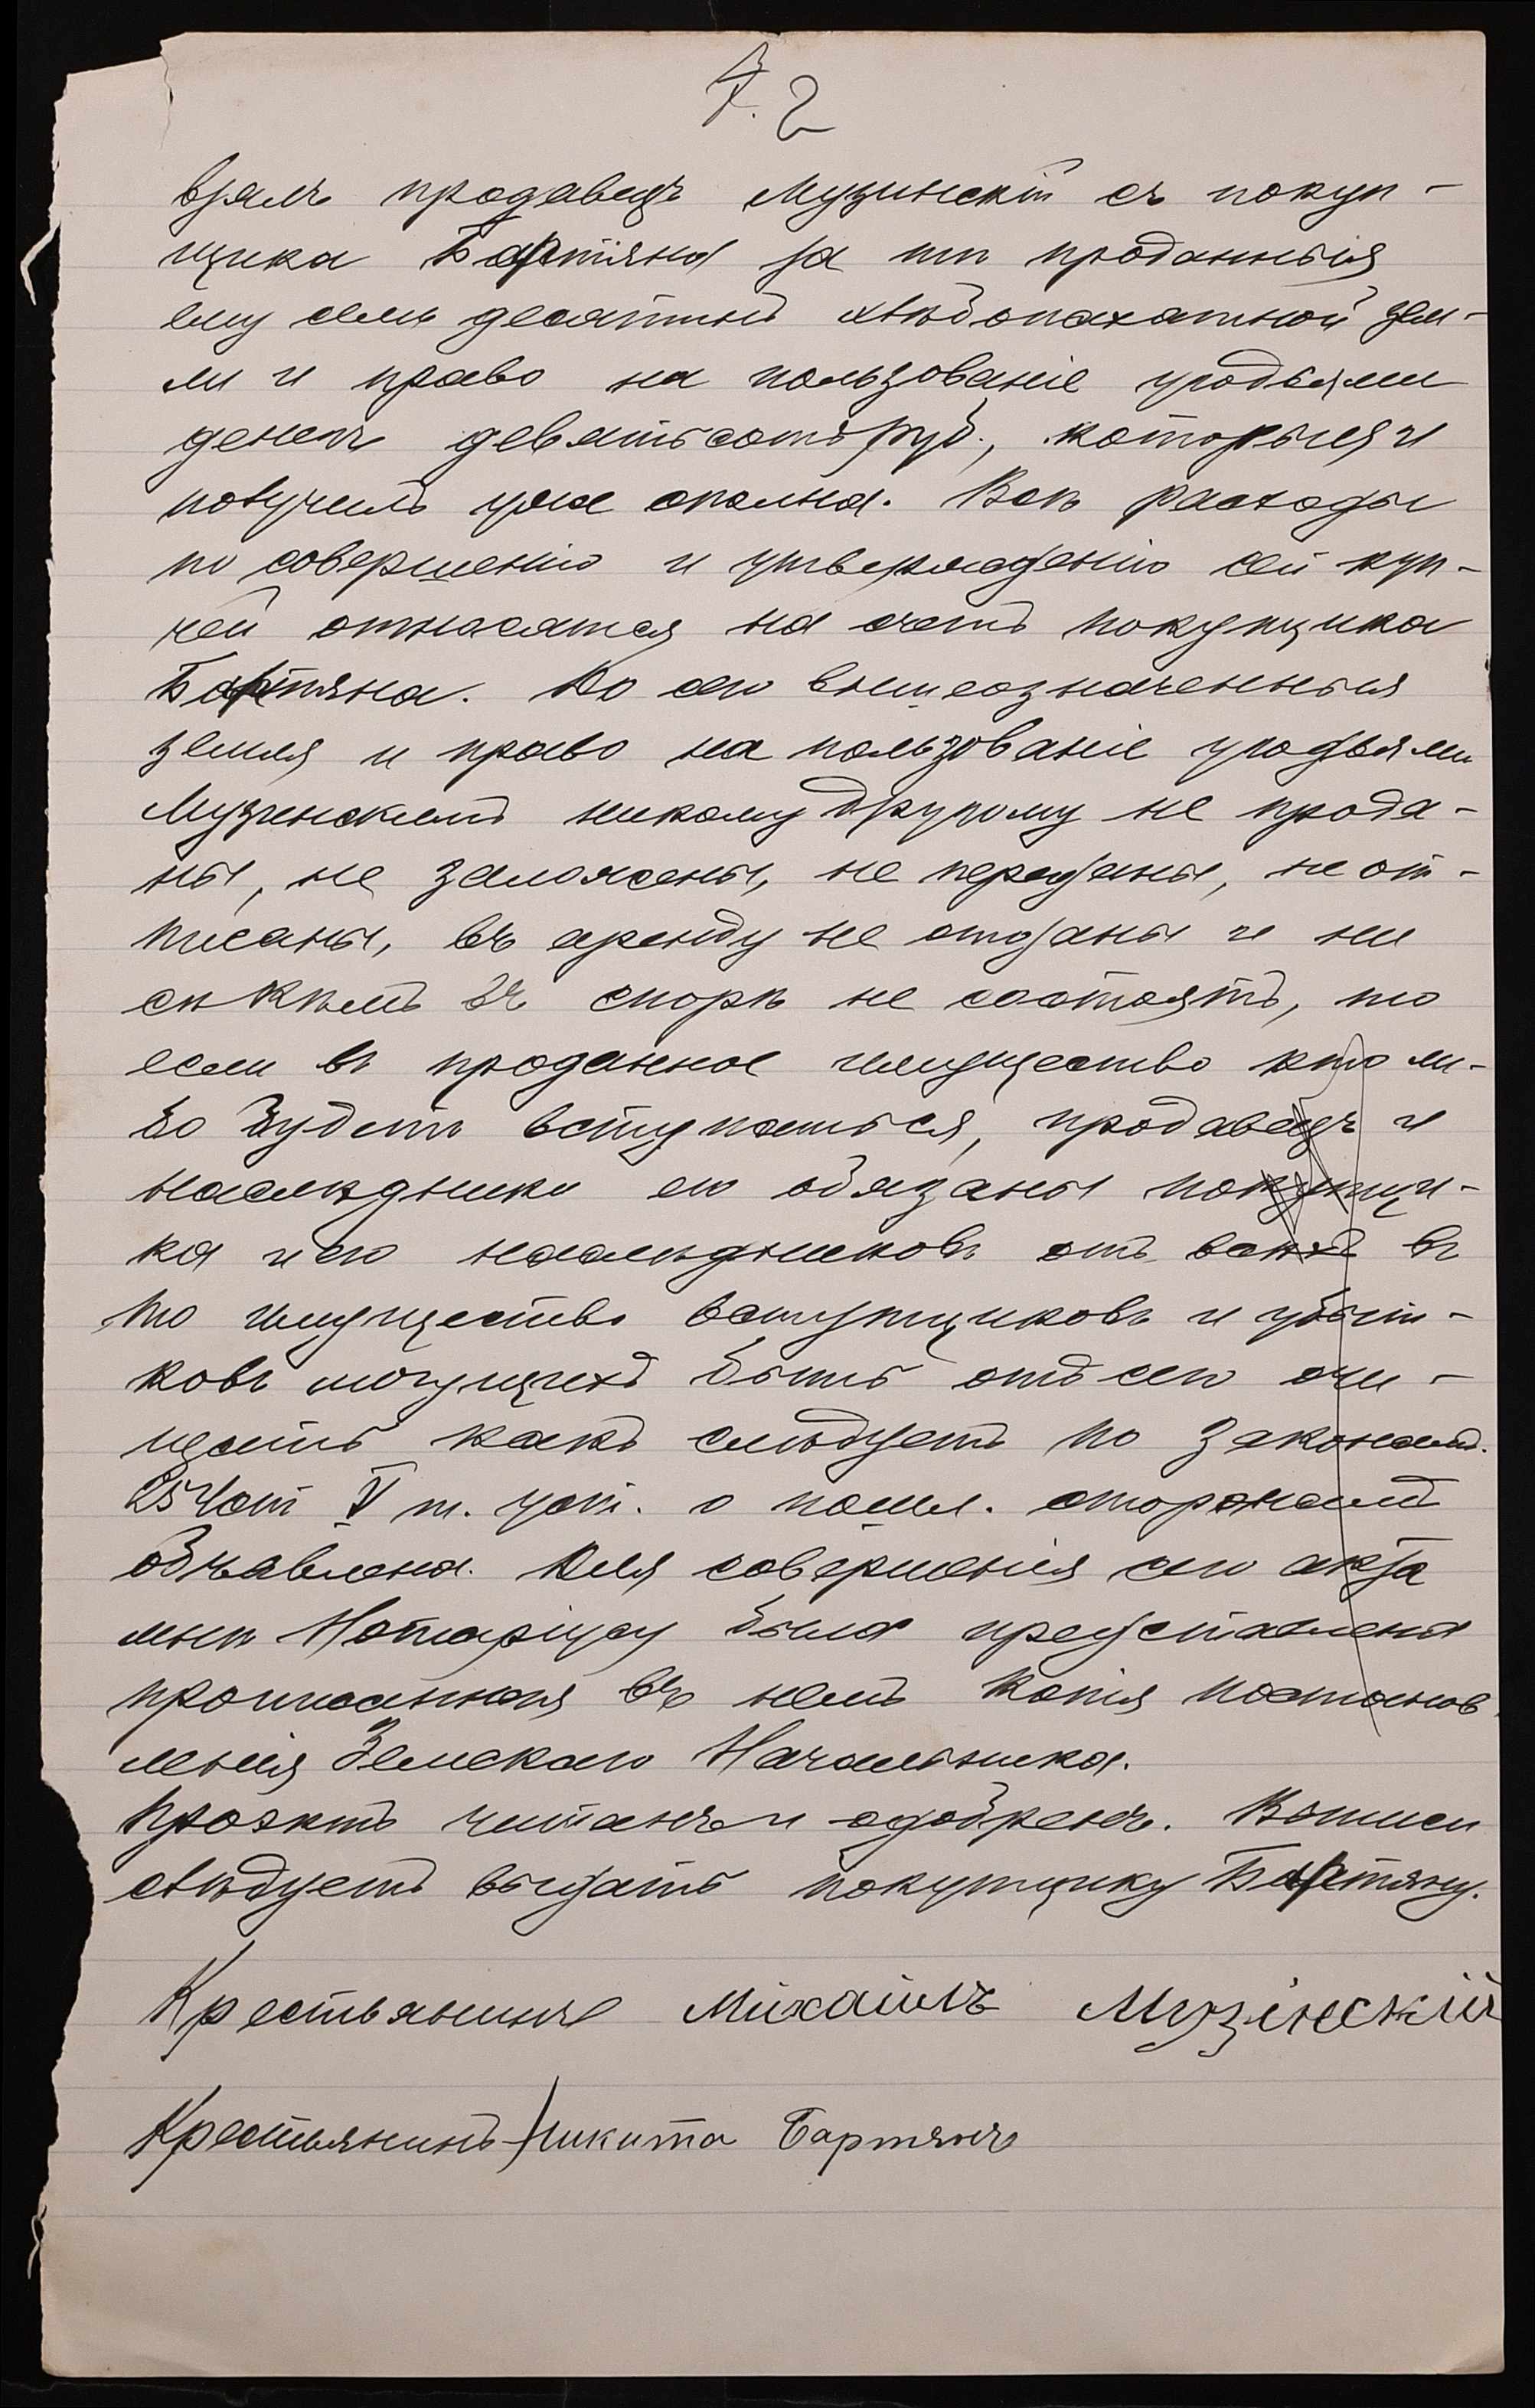 2
взялъ продавецъ Музинскій съ покуп-
щика Бартяна за тѣ проданныя
ему семь десятинъ хлѣбопахатной зем-
ли и право на пользованіе угодьями
денегъ девятьсотъ руб., которыя и
получилъ уже сполна. Всѣ расходы
по совершенію и утвержденію сей куп-
чей относятся на счетъ покупщика
Бартяна. До сего вышеозначенныя
земля и право на пользованіе угодьями
Музинскимъ никому другому не прода-
ны, не заложены, не переданы, не от-
писаны, въ аренду не отданы и ни
съ кѣмъ въ спорѣ не состоятъ, но
если въ проданное имущество кто ли-
бо будетъ вступаться, продавецъ и
наслѣдники его обязаны покупщи-
ка и его наслѣдниковъ отъ всѣхъ въ
то имущество вступщиковъ и убыт-
ковъ могущихъ быть отъ сего очи-
щать какъ слѣдуетъ по законамъ.
254 ст V т. уст. о пошл. сторонамъ
объявлена. Для совершенія сего акта
мнѣ Нотаріусу была представлена
прописанная въ немъ копія постанов
ленія Земскаго Начальника.
Проэктъ читанъ и одобренъ. Выписи
слѣдуетъ выдать покупщику Бартяну.
Крестьянинъ Михаилъ Музінскій
Крестьянинъ Никита Бартянъ